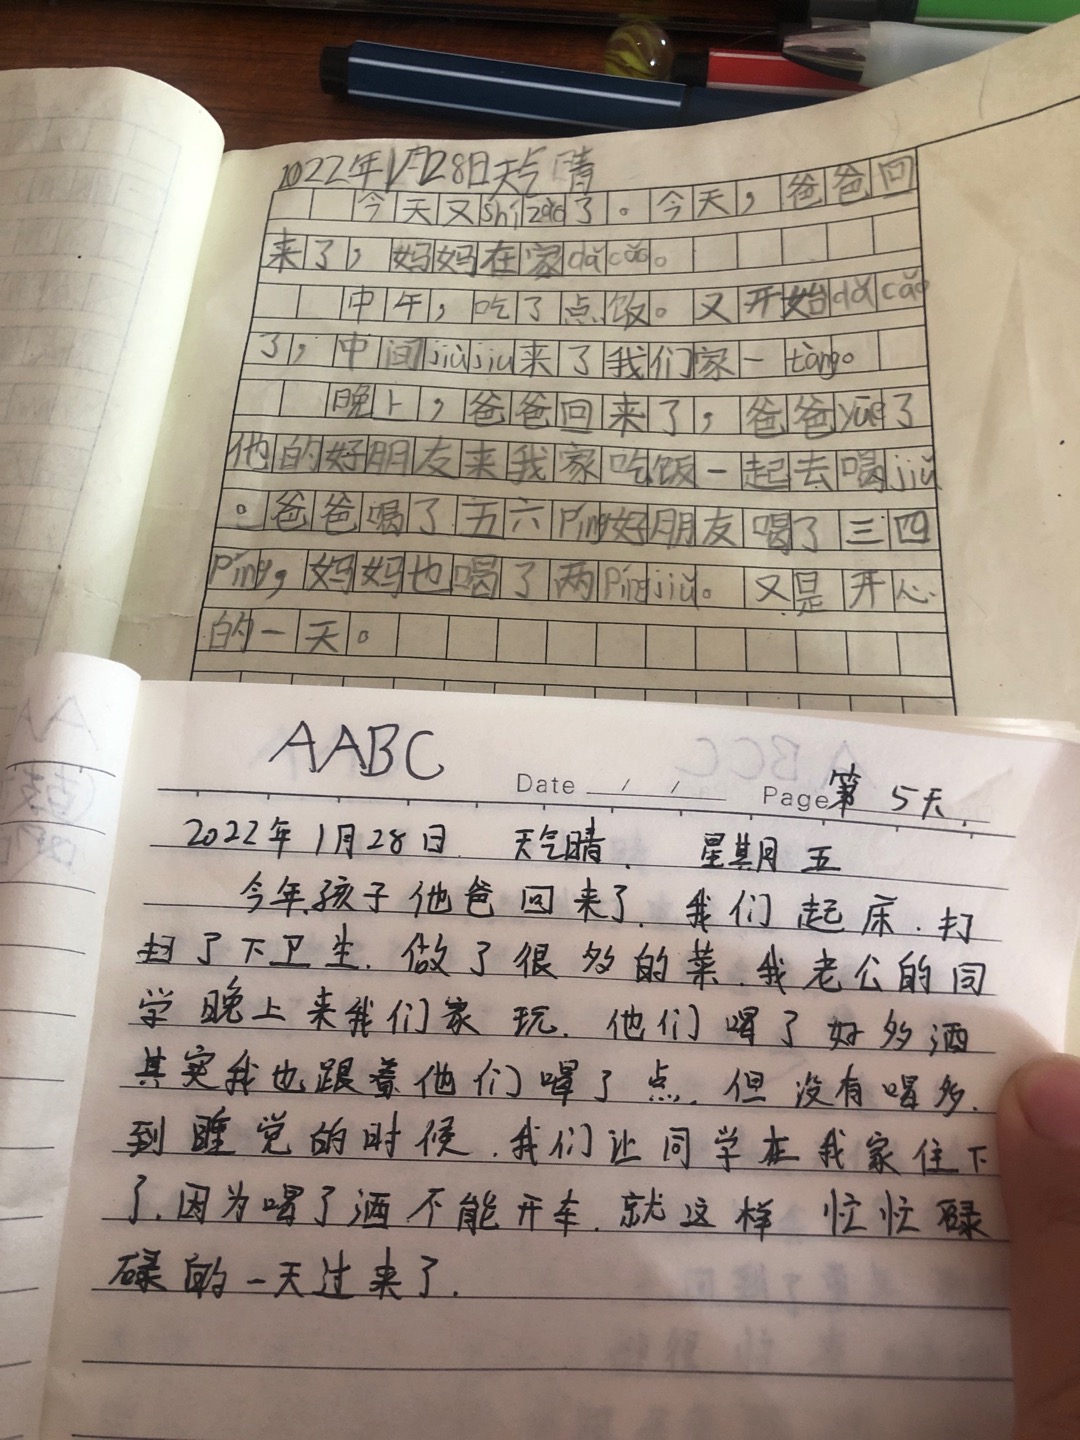 2022年1月28日天气晴
今天又shì zǎo了。今天，爸爸回
来了，妈妈在家dǎ cǎo。
中午，吃了点饭。又开始dǎ cǎo
了，中间jiùjiu来了我们家一tàng。
晚上，爸爸回来了，爸爸yuē了
他的好朋友来我家吃饭一起去喝jiǔ
。爸爸喝了五六Píng好朋友喝了三四
Píng，妈妈也喝了两Píngjiǔ。又是开心
的一天。
AABC
Date / / Page第5天.
2022年1月28日. 天气晴. 星期五
今年孩子他爸回来了.我们起床.打
扫了下卫生.做了很多的菜.我老公的同
学晚上来我们家玩.他们喝了好多酒
其实我也跟着他们喝了点.但没有喝多.
到睡觉的时候.我们让同学在我家住下
了.因为喝了酒不能开车.就这样忙忙碌
碌的一天过来了.